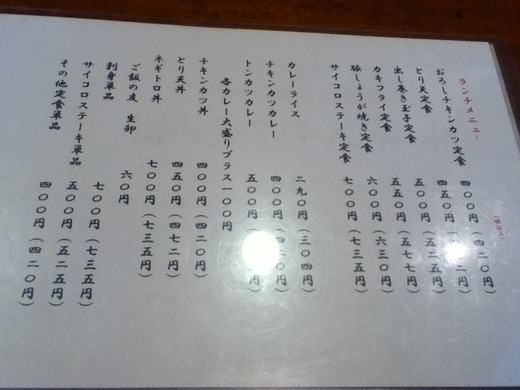 ランチメニュー
おろしチキンカツ定食 四〇〇円(四二〇円)
とり天定食 四五〇 二円)
出し巻き玉子定食 五〇円(五二五円)
カキフライ定食 五五〇円(五七七円)
豚しょうが焼き定食 六〇〇円(六三〇円)
サイコロステーキ定食 七〇〇円(七三五円)
カレーライス 二九〇円(三〇四円)
チキンカツカレー 四〇〇円(四二〇円)
トンカツカレー 五〇〇 円)
各カレー大盛りプラス一〇〇円
チキンカツ丼 四〇〇円(四二〇円)
とり天丼 四五〇円(四七二円)
ネギトロ丼 七〇〇円(七三五円)
ご飯の友 生卵 六〇円
刺身単品 七〇〇円(七三五円)
サイコロステーキ単品 五〇〇円(五二五円)
その他定食単品 四〇〇円(四二〇円)